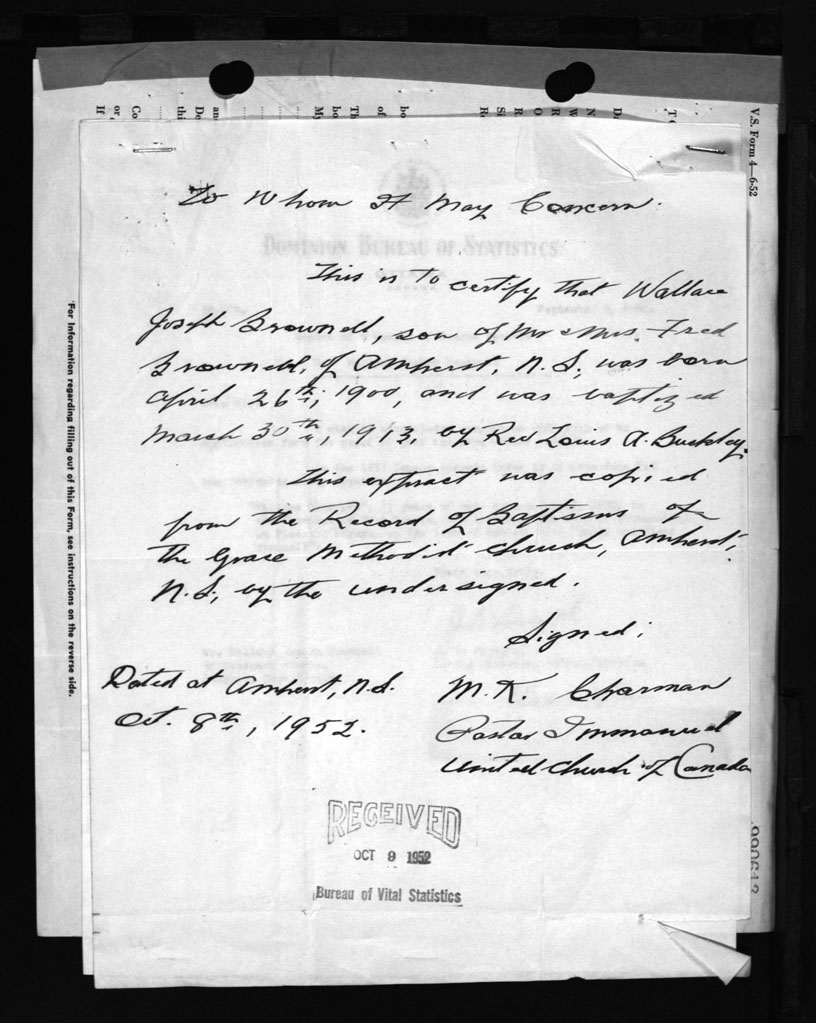 V.S. Form 4—6-52
To Whom It May Concern.
DOMINION BUREAU OF STATISTICS
This is to certify that Wallace
Joseph Brownell, son of Mr & Mrs. Fred
Brownell, of Amherst, N.S., was born
April 26th, 1900, and was baptized
March 30th, 1913, by Rev Louis A. Buckley.
This extract was copied
from the Record of Baptisms of
the Grace Methodist Church, Amherst,
N.S., by the undersigned.
Signed:
Dated at Amherst, N.S.
Oct. 8th, 1952.
M.K. Charman
Pastor Immanuel
United Church of Canada
RECEIVED
OCT 9 1952
Bureau of Vital Statistics
For Information regarding filling out of this Form, see instructions on the reverse side.